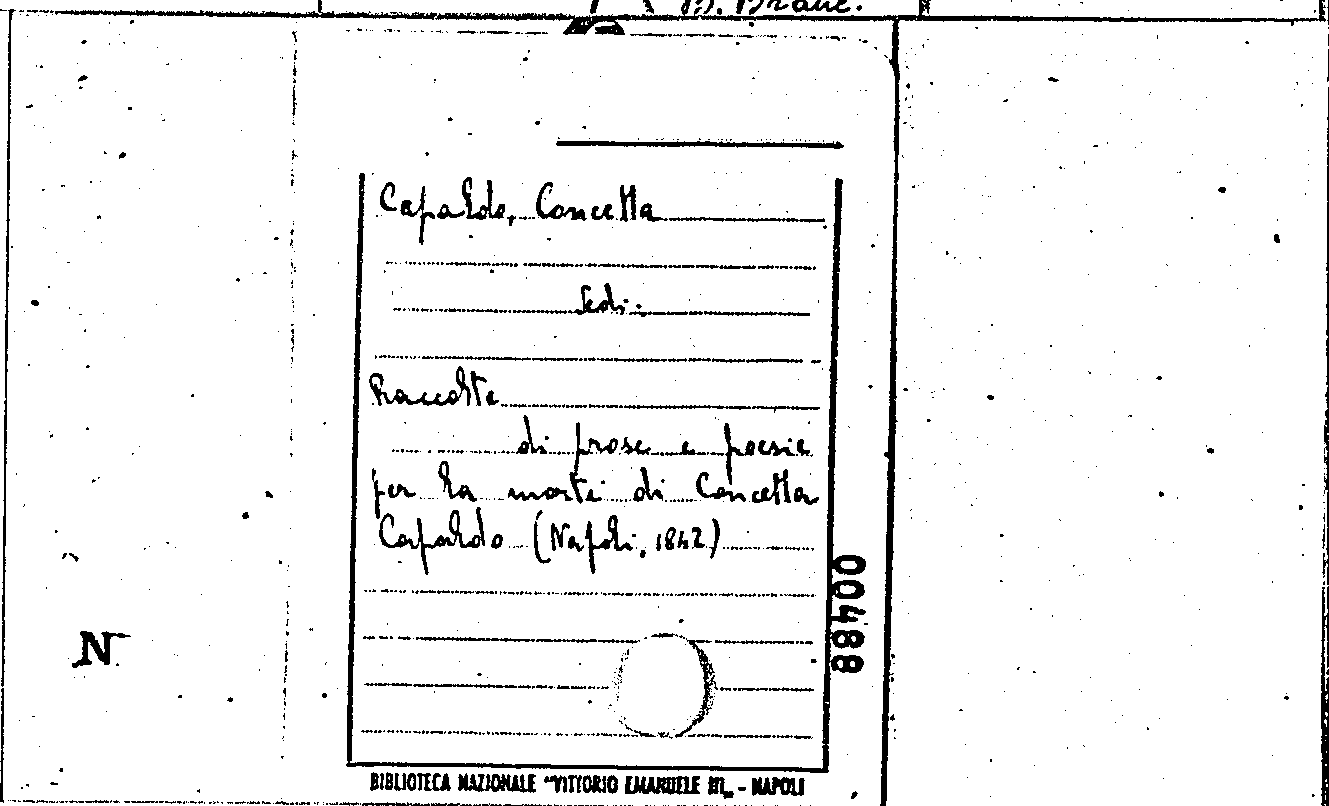 B. Brauc.
Capaldo, Concetta
Vedi:
Raccolta
di prose e poesie
per la morte di Concetta
Capaldo (Napoli, 1842)
00488
N
BIBLIOTECA NAZIONALE "VITTORIO EMANUELE III„ - NAPOLI